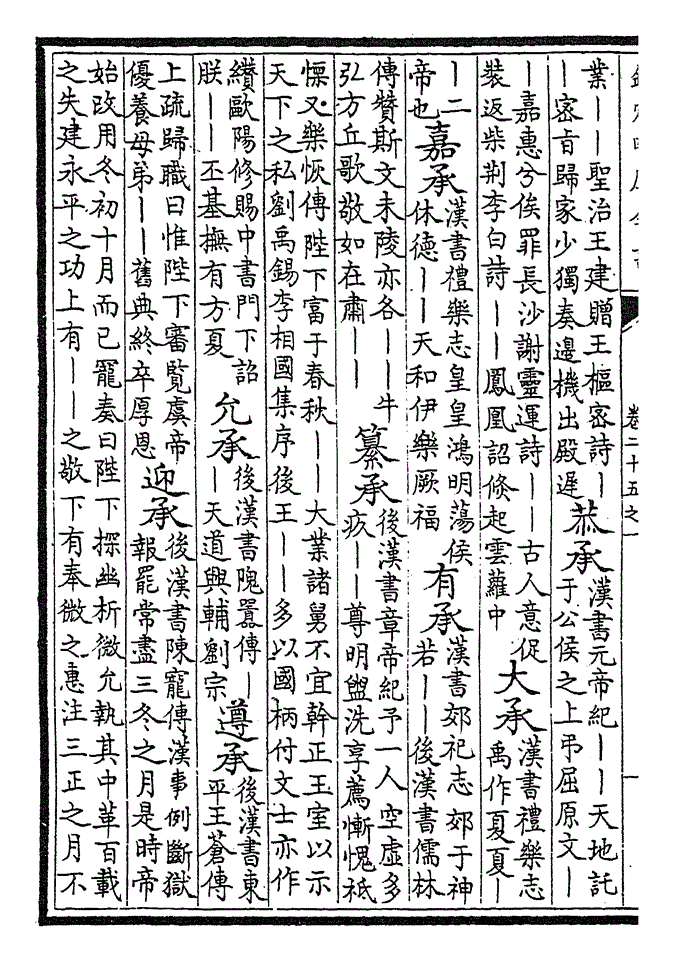 卷二十五之一
業——聖治王建贈王樞密詩—
—密旨歸家少獨奏邊機出殿遲
恭承
漢書元帝紀——天地託
于公侯之上弔屈原文—
—嘉惠兮俟罪長沙謝靈運詩——古人意促
裝返柴荆李白詩——鳳凰詔倏起雲蘿中
大承
漢書禮樂志
禹作夏夏—
—二
帝也
嘉承
漢書禮樂志皇皇鴻明蕩侯
休德——天和伊樂厥福
有承
漢書郊祀志郊于神
若——後漢書儒林
傳贊斯文未陵亦各——牛
弘方丘歌敬如在肅——
纂承
後漢書章帝紀予一人空虛多
疚——尊明盥洗享薦慚愧祗
慄又樂恢傳陛下富于春秋——大業諸舅不宜幹正王室以示
天下之私劉禹錫李相國集序後王——多以國柄付文士亦作
纘歐陽修賜中書門下詔
朕——丕基撫有方夏
允承
後漢書隗囂傳—
—天道興輔劉宗
遵承
後漢書東
平王蒼傳
上疏歸職曰惟陛下審覽虞帝
優養母弟——舊典終卒厚恩
迎承
後漢書陳寵傳漢事例斷獄
報罷常盡三冬之月是時帝
始改用冬初十月而已寵奏曰陛下探幽析微允執其中革百載
之失建永平之功上有——之敬下有奉微之惠注三正之月不